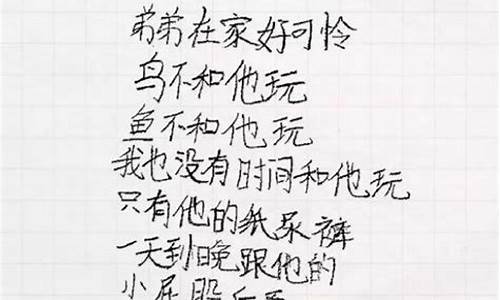 弟弟在家好可怜
鸟不和他玩
鱼不和他玩
我也没有时间和他玩
只有他的纸尿裤
一天到晚跟他的
小屁股